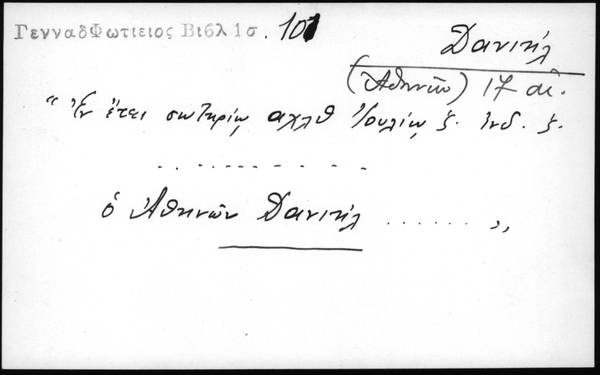 ΓενναδΦωτιειος Βιβλ 1σ. 101
Δανιήλ
(Ἀθηνῶν) 17 αἰ.
"Ἐν ἔτει σωτηρίῳ αχλθ Ἰουλίῳ ξ. ἰνδ. ξ.
. . . . . . . . . . . . .
ὁ Ἀθηνῶν Δανιήλ . . . . . . "